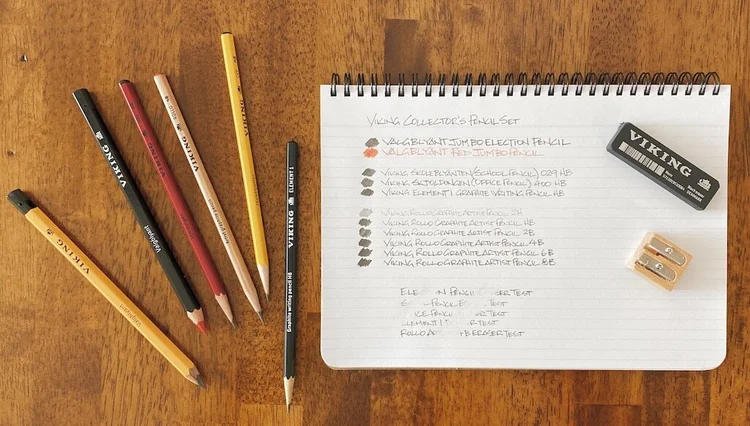 VIKING COLLECTOR'S PENCIL SET
VALGBLYANT JUMBO ELECTION PENCIL
VALGBLYANT RED JUMBO PENCIL
VIKING SKOLEBLYANTEN (SCHOOL PENCIL) 029 HB
VIKING SKJOLDUNGEN (OFFICE PENCIL) 400 HB
VIKING ELEMENT 1 GRAPHITE WRITING PENCIL HB
VIKING ROLLO GRAPHITE ARTIST PENCIL 2H
VIKING ROLLO GRAPHITE ARTIST PENCIL HB
VIKING ROLLO GRAPHITE ARTIST PENCIL 2B
VIKING ROLLO GRAPHITE ARTIST PENCIL 4B
VIKING ROLLO GRAPHITE ARTIST PENCIL 6B
VIKING ROLLO GRAPHITE ARTIST PENCIL 8B
ELE N PENCI SER TEST
PENCIL TEST
ICE PENCI R TEST
LEMENT 1 R TEST
ROLLO AR B ERASER TEST
VIKING
VIKING
Valgblyant
VIKING
VIKING
VIKING
VIKING ELEMENT 1
Graphite writing pencil HB
VIKING